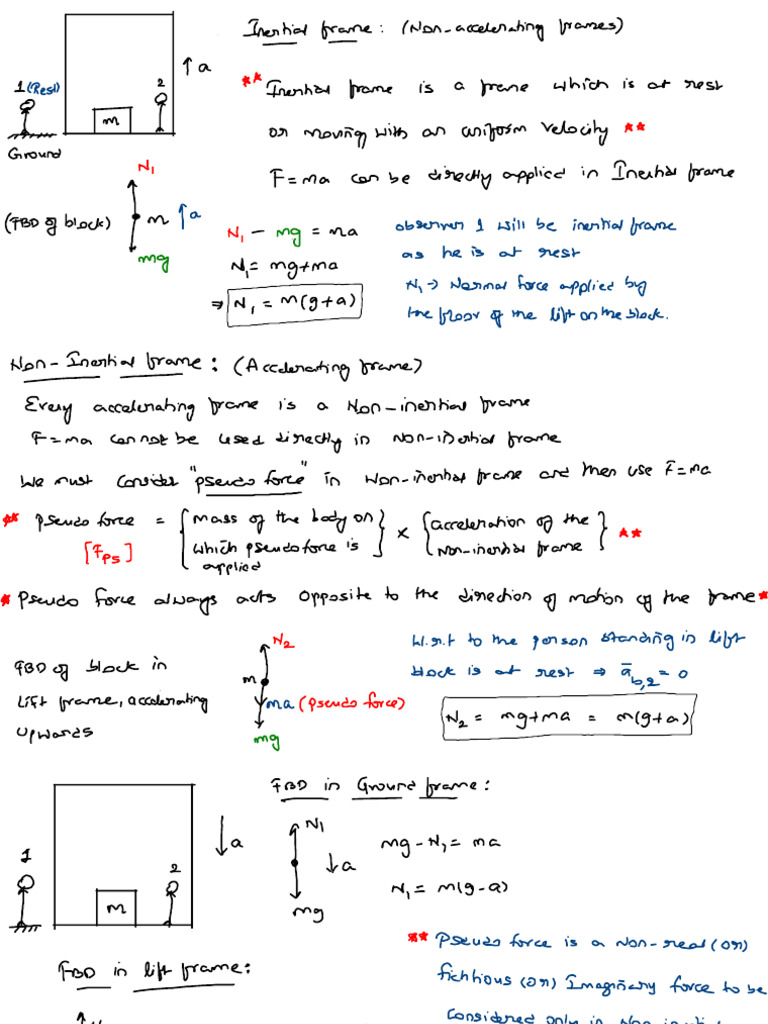 Inertial frame: (Non-accelerating frames)
↑a
1(Rest)
2
m
Ground
** Inertial frame is a frame which is at rest
or moving with an uniform velocity **
F=ma can be directly applied in Inertial frame
N₁
(FBD of block)
m ↑a
mg
N₁ - mg = ma
N₁ = mg+ma
⇒ N₁ = m(g+a)
observer 1 will be inertial frame
as he is at rest
N₁→ Normal force applied by
the floor of the lift on the block.
Non-Inertial frame: (Accelerating frame)
Every accelerating frame is a Non-inertial frame
F=ma cannot be used directly in Non-inertial frame
We must consider "pseudo force" in Non-inertial frame and then use F=ma
** pseudo force = {mass of the body on which pseudo force is applied} × {acceleration of the Non-inertial frame} **
[F_PS]
* Pseudo force always acts opposite to the direction of motion of the frame *
FBD of block in
lift frame, accelerating
upwards
N₂
m
ma (pseudo force)
mg
W.r.t to the person standing in lift
block is at rest ⇒ a̅_b,2 = 0
N₂ = mg+ma = m(g+a)
1
2
m
↓a
FBD in Ground frame:
N₁
↓a
mg
mg-N₁= ma
N₁= m(g-a)
FBD in lift frame:
** Pseudo force is a Non-real (or)
fictitious (or) Imaginary force to be
considered only in